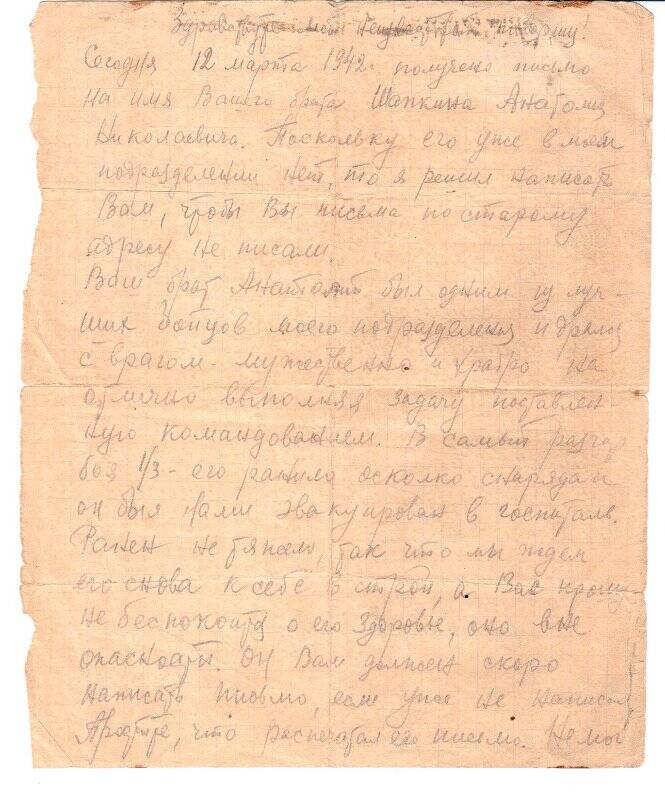 Здравствуйте мой неизвестный товарищ!
Сегодня 12 марта 1942 г. получено письмо
на имя Вашего брата Шапкина Анатолия
Николаевича. Поскольку его уже в моем
подразделении нет, то я решил написать
Вам, чтобы Вы письма по старому
адресу не писали.
Ваш брат Анатолий был одним из луч-
ших бойцов моего подразделения и дрался
с врагом - мужественно и храбро на
отлично выполняя задачу поставлен-
ную командованием. В самый разгар
боя 1/3 - его ранило осколко снаряда и
он был нами эвакуирован в госпиталь.
Ранен не тяжело, так что мы ждем
его снова к себе в строй, а Вас прошу
не беспокоится о его здоровье, оно вне
опасности. Он Вам должен скоро
написать письмо, если уже не написал
Простите, что распечатал его письмо. Не мог